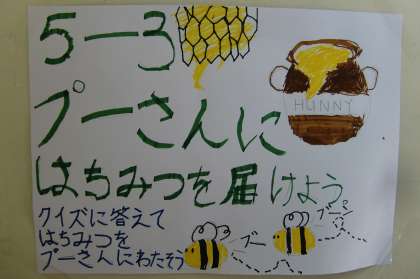 5-3
HUNNY
プーさんに
はちみつを届けよう
クイズに答えて
はちみつを
プーさんにわたそう
ブー
ブーン